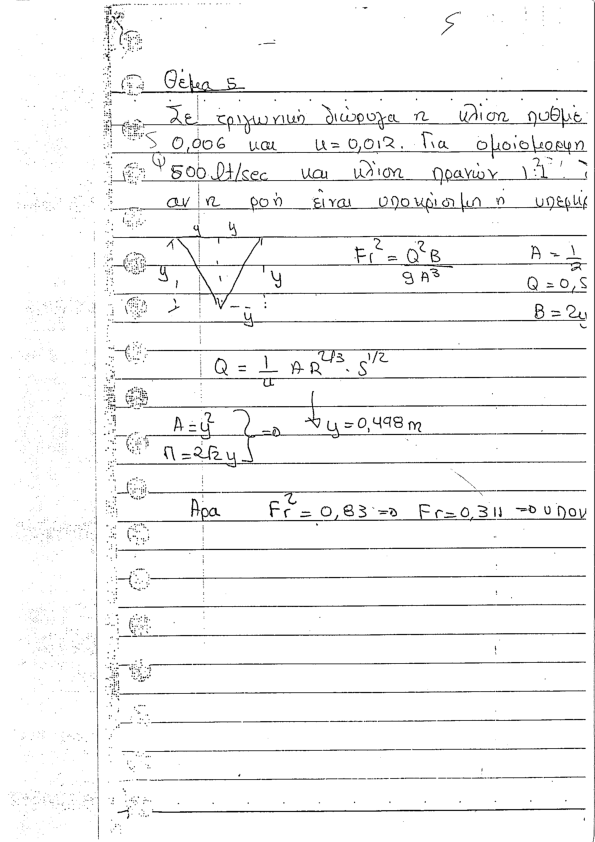 5
Θέμα 5
Σε τριγωνική διώρυγα η κλίση πυθμέ
S 0,006 και u=0,012. Για ομοιόμορφη
Q 500 lt/sec και κλίση πρανών 1:1
αν η ροή είναι υποκρίσιμη ή υπερκρ
y y
Fr² = Q²B / gA³
A = 1/2
y y
Q = 0,5
y
B = 2y
Q = 1/u A R^2/3 · S^1/2
A = y²
Π = 2√2 y } => y = 0,498 m
Άρα Fr² = 0,83 => Fr = 0,311 => υποκ